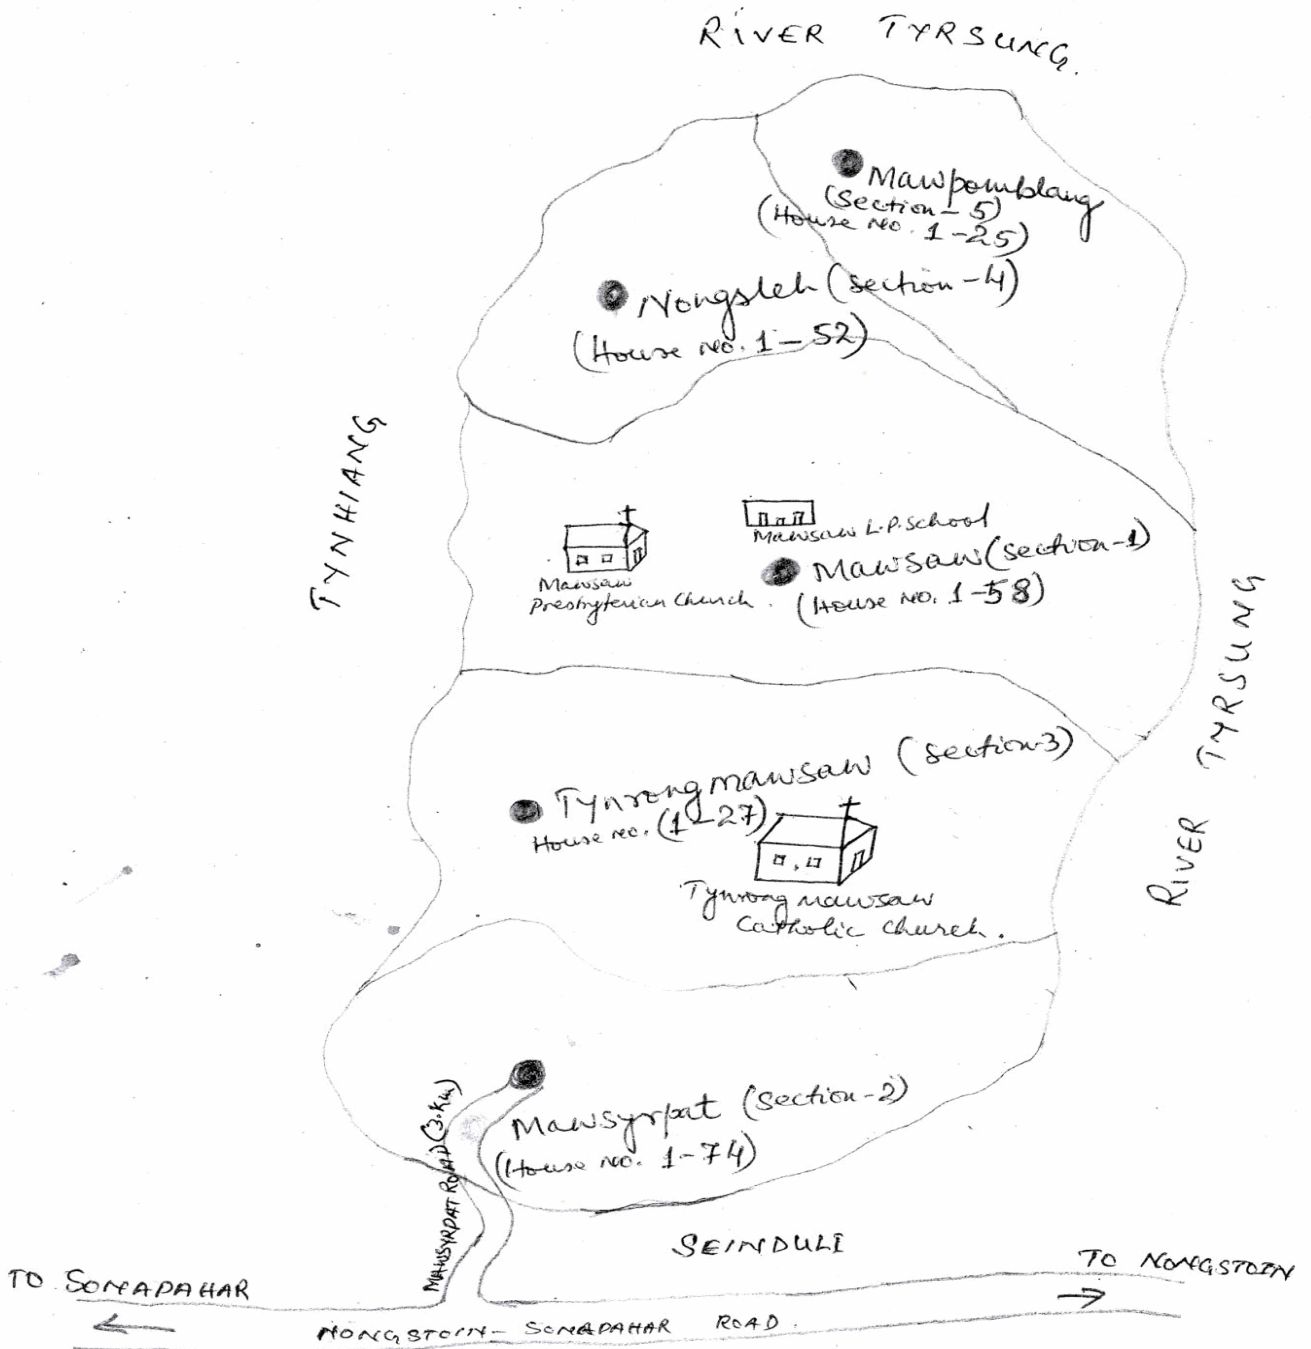 RIVER TYRSUNG.
Mawpomblang
(Section-5)
(House no. 1-25)
Nongsleh (section-4)
(House no. 1-52)
TYNHIANG
Mawsaw L.P. School
Mawsaw (section-1)
(House no. 1-58)
Mawsaw
Presbyterian Church.
RIVER TYRSUNG
Tynrongmawsaw (section-3)
House no. (1-27)
Tynrongmawsaw
Catholic church.
Mawsyrpat (section-2)
(House no. 1-74)
MAWSYRPAT ROAD (3.Km)
SEINDULI
TO SONAPAHAR
TO NONGSTOIN
NONGSTOIN-SONAPAHAR ROAD.